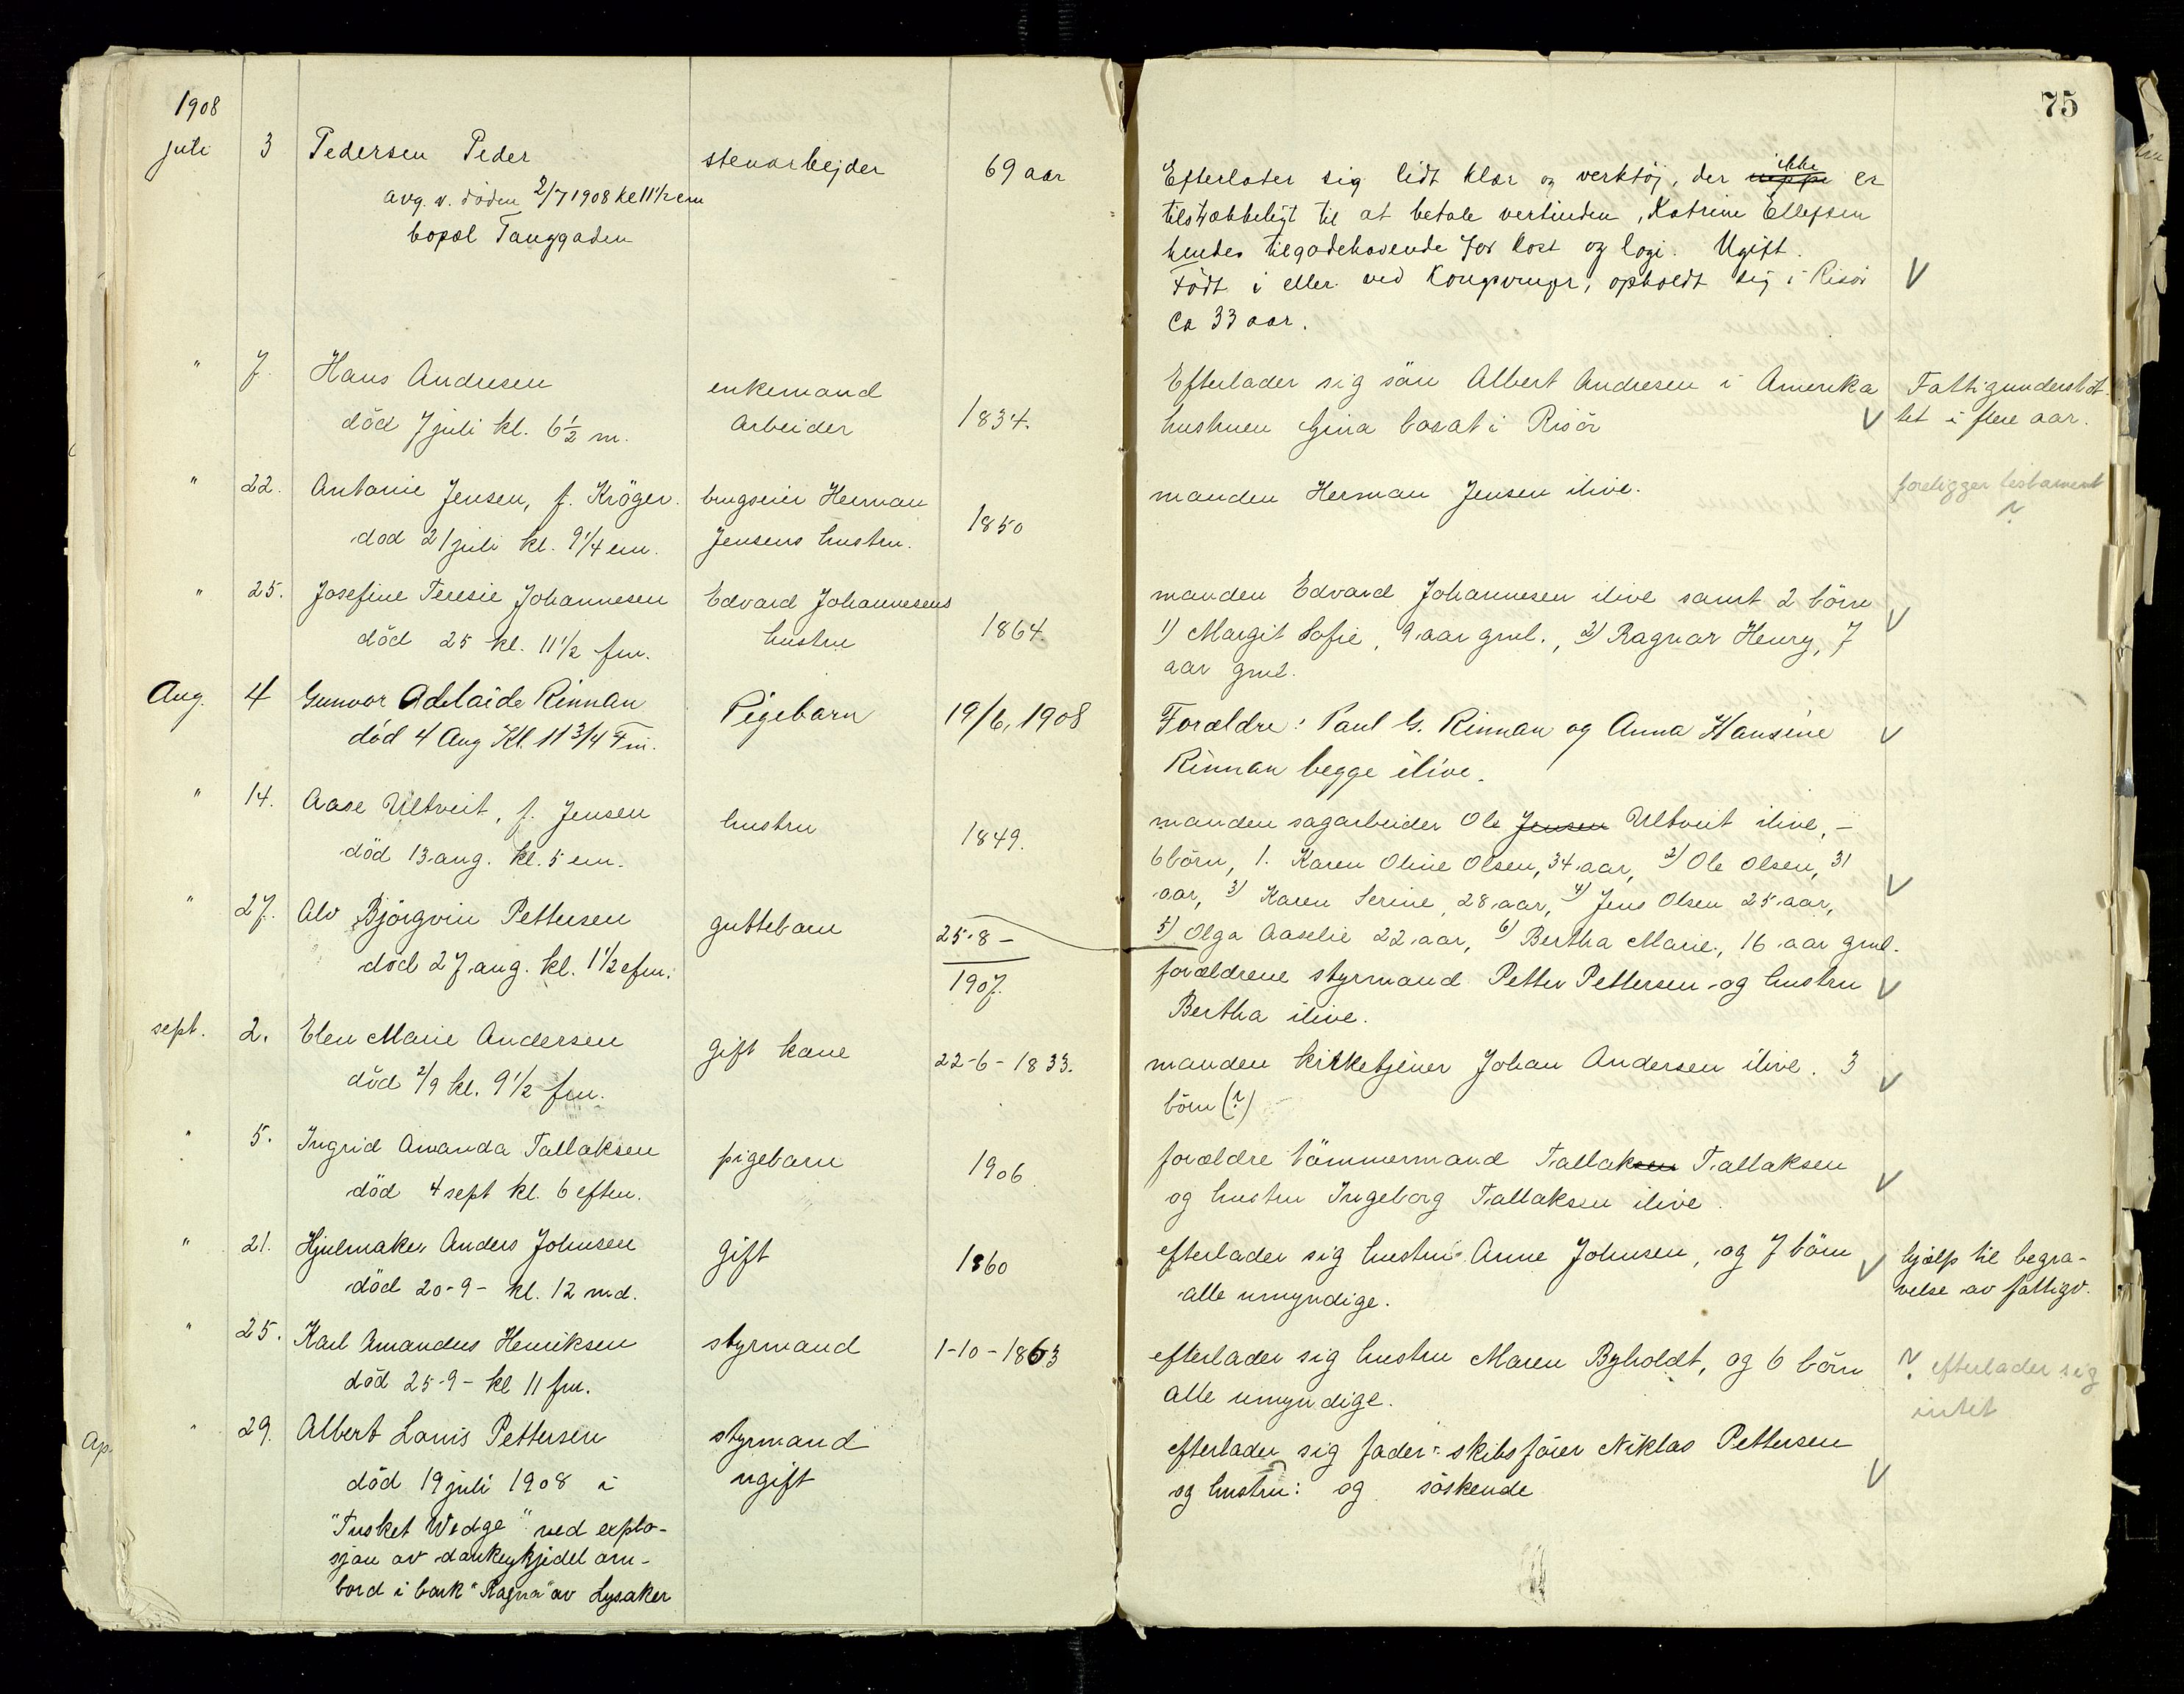 75
1908
juli 3 Pedersen Peder stenarbejder 69 aar
avg. v. döden 2/7 1908 kl 11 1/2 em
bopæl Tanggaden
Efterlater sig lidt klær og verktöj, der neppe ikke er
tilstrækkeligt til at betale vertinden, Katrine Ellefsen
hendes tilgodehavende for kost og logi. Ugift.
Födt i eller ved Kongsvinger, opholdt sig i Risör
Ca 33 aar.
" 7. Hans Andresen enkemand
död 7 juli kl. 6 1/2 m. Arbeider 1834.
Efterlader sig sön Albert Andresen i Amerika Fattigunderstöt-
hustruen Gina bosat i Risör tet i flere aar.
" 22. Antonie Jensen, f. Kröger. brugseier Herman
död 21 juli kl. 9 1/4 em. Jensens hustru. 1850
manden Herman Jensen ilive. foreligger testament
?
" 25. Josefine Teresie Johannesen Edvard Johannesens
död 25 kl. 11 1/2 fm. hustru 1864
manden Edvard Johannesen ilive samt 2 börn
1) Margit Sofie, 9 aar gml., 2) Ragnar Henry, 7
aar gml.
Aug. 4 Gunvor Adelaide Rinnan Pigebarn 19/6, 1908
död 4 Aug Kl. 11 3/4 Fm.
Forældre: Paul G. Rinnan og Anna Hansine
Rinnan begge ilive.
" 14. Aase Ultveit, f. Jensen hustru 1849.
död 13 aug. kl. 5 em.
manden sagarbeider Ole Jensen Ultveit ilive, -
6 börn, 1. Karen Oline Olsen, 34 aar, 2) Ole Olsen, 31
aar, 3) Karen Serine, 28 aar, 4) Jens Olsen 25 aar,
5) Olga Aaselie 22 aar, 6) Bertha Marie, 16 aar gml.
" 27. Alv Björgvin Pettersen guttebarn 25-8-
död 27 aug. kl. 1 1/2 efm. 1907.
forældrene styrmand Petter Pettersen og hustru
Bertha ilive.
sept. 2. Elen Marie Andersen gift kone 22-6-1833.
död 2/9 kl. 9 1/2 fm.
manden kirketjener Johan Andersen ilive. 3
börn (?)
" 5. Ingrid Amanda Tallaksen pigebarn 1906.
död 4 sept kl. 6 eftm.
forældre tömmermand Tallaksen Tallaksen
og hustru Ingeborg Tallaksen ilive.
" 21. Hjulmaker Anders Johnsen gift 1860
död 20-9- kl. 12 md.
efterlader sig hustru Anne Johnsen, og 7 börn hjælp til begra-
alle umyndige. velse av fattigv.
" 25. Karl Amandus Henriksen styrmand 1-10-1863
död 25-9- kl 11 fm.
efterlader sig hustru Maren Byholdt, og 6 börn ? efterlader sig
alle umyndige. intet
Ap. " 29. Albert Louis Pettersen styrmand
död 19 juli 1908 i ugift
"Tusket Wedge" ved explo-
sjon av donkeykjedel om-
bord i bark "Ragna" av Lysaker
efterlader sig fader: skibsförer Niklas Pettersen
og hustru: og söskende